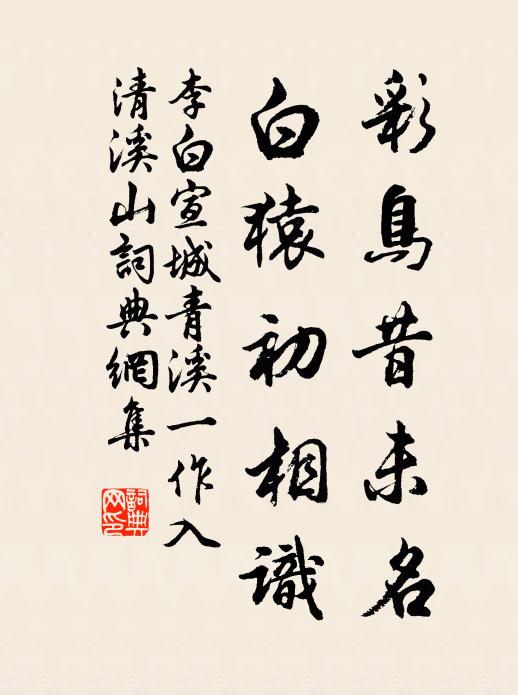 彩鳥昔未名
白猿初相識
李白宣城青溪一作入
清溪山詞典網集
詞典网印